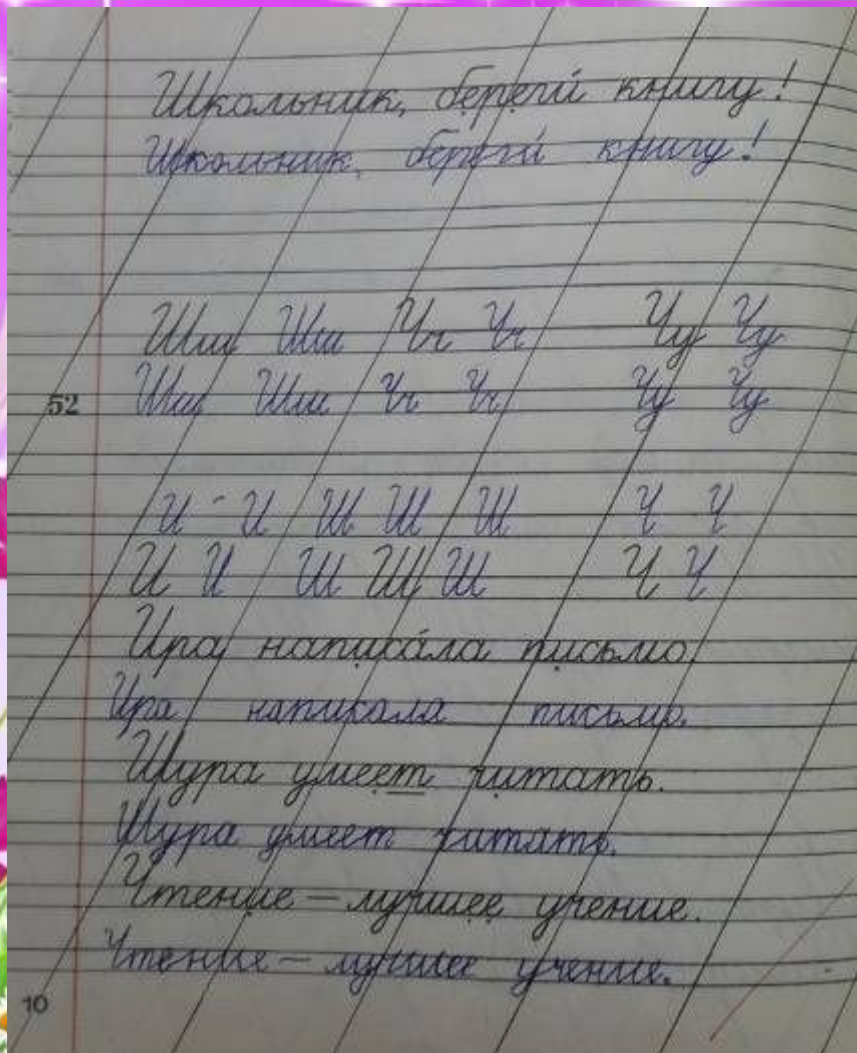 Школьник, береги́ книгу!
Школьник, береги́ книгу!
Шш Шш Чч Чч Чу Чу
52
Шш Шш Чч Чч Чу Чу
И И Ш Ш Ш Ч Ч
И И Ш Ш Ш Ч Ч
Ира написа́ла письмо
Ира написала письмо.
Шура умеет читать.
Шура умеет читать.
Чтение — лучшее учение.
Чтение — лучшее учение.
10